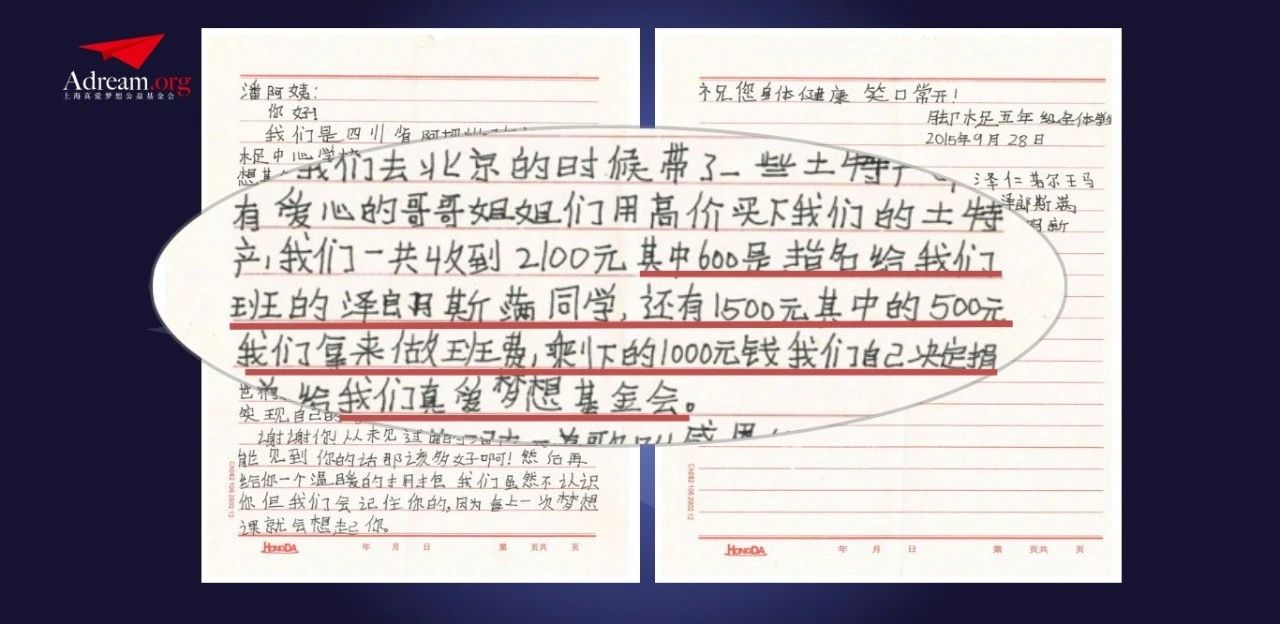 Adream.org
上海真爱梦想公益基金会
潘阿姨:
你好!
我们是四川省阿坝州
想
我们去北京的时候带了一些土特产
有爱心的哥哥姐姐们用高价买下我们的土特
产,我们一共收到2100元其中600是指名给我们
班的泽郎斯满同学,还有1500元其中的500元
我们拿来做班费,剩下的1000元钱我们自己决定捐
给我们真爱梦想基金会。
实现自己的
谢谢你从未见
能见到你的话那该多好啊!然后再
给你一个温暖的拥抱 我们虽然不认识
你但我们会记住你的,因为每上一次梦想
课就会想起你。
HONGDA 年 月 日 第 页共 页
祝您身体健康 笑口常开!
脚木足五年级全体学生
2015年9月28日
泽仁若尔王马
泽郎斯满
HONGDA 年 月 日 第 页共 页